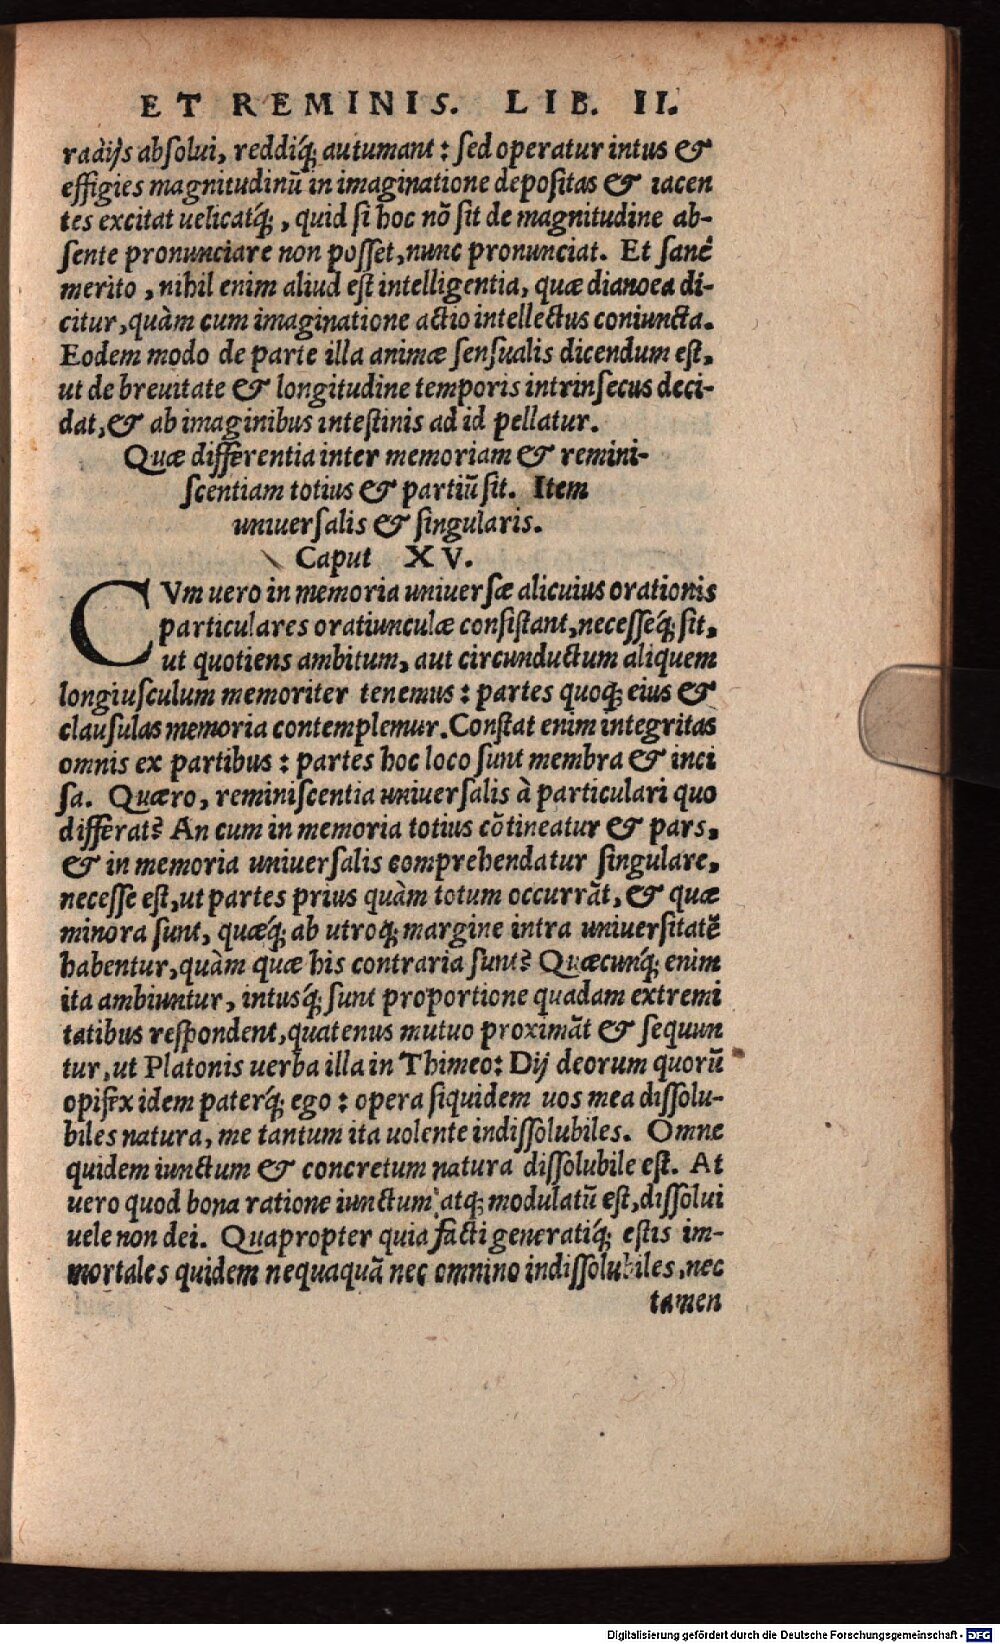 ET REMINIS. LIB. II.
radijs absolui, reddíq; autumant: sed operatur intus &
effigies magnitudinū in imaginatione depositas & iacen
tes excitat uelicatq́;, quid si hoc nō sit de magnitudine ab-
sente pronunciare non posset, nunc pronunciat. Et sanè
merito, nihil enim aliud est intelligentia, quæ dianoea di-
citur, quàm cum imaginatione actio intellectus coniuncta.
Eodem modo de parte illa animæ sensualis dicendum est,
ut de breuitate & longitudine temporis intrinsecus deci-
dat, & ab imaginibus intestinis ad id pellatur.
Quæ differentia inter memoriam & remini-
scentiam totius & partiū sit. Item
uniuersalis & singularis.
Caput XV.
CVm uero in memoria uniuersæ alicuius orationis
particulares oratiunculæ consistant, necesseq́; sit,
ut quotiens ambitum, aut circunductum aliquem
longiusculum memoriter tenemus: partes quoq; eius &
clausulas memoria contemplemur. Constat enim integritas
omnis ex partibus: partes hoc loco sunt membra & inci
sa. Quæro, reminiscentia uniuersalis à particulari quo
differat? An cum in memoria totius cōtineatur & pars,
& in memoria uniuersalis comprehendatur singulare,
necesse est, ut partes prius quàm totum occurrāt, & quæ
minora sunt, quæq́; ab utroq; margine intra uniuersitatē
habentur, quàm quæ his contraria sunt? Quæcunq́; enim
ita ambiuntur, intusq́; sunt proportione quadam extremi
tatibus respondent, quatenus mutuo proximāt & sequun
tur, ut Platonis uerba illa in Thimeo: Dij deorum quorū
opifex idem paterq́; ego: opera siquidem uos mea dissolu-
biles natura, me tantum ita uolente indissolubiles. Omne
quidem iunctum & concretum natura dissolubile est. At
uero quod bona ratione iunctum atq; modulatū est, dissolui
uele non dei. Quapropter quia facti generatiq́; estis im-
mortales quidem nequaquā nec omnino indissolubiles, nec
tamen
Digitalisierung gefördert durch die Deutsche Forschungsgemeinschaft - DFG